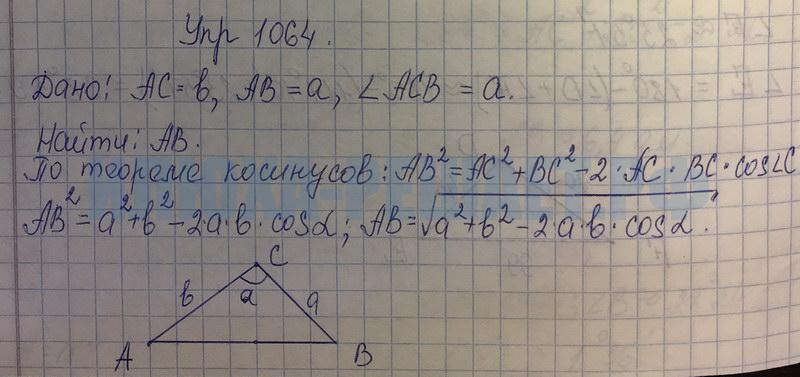 Упр 1064.
Дано: AC=b, AB=a, ∠ACB=a.
Найти: AB.
По теореме косинусов: AB²=AC²+BC²-2·AC·BC·cos∠C
AB²=a²+b²-2·a·b·cosα; AB=√a²+b²-2·a·b·cosα.
C
b a a
A B